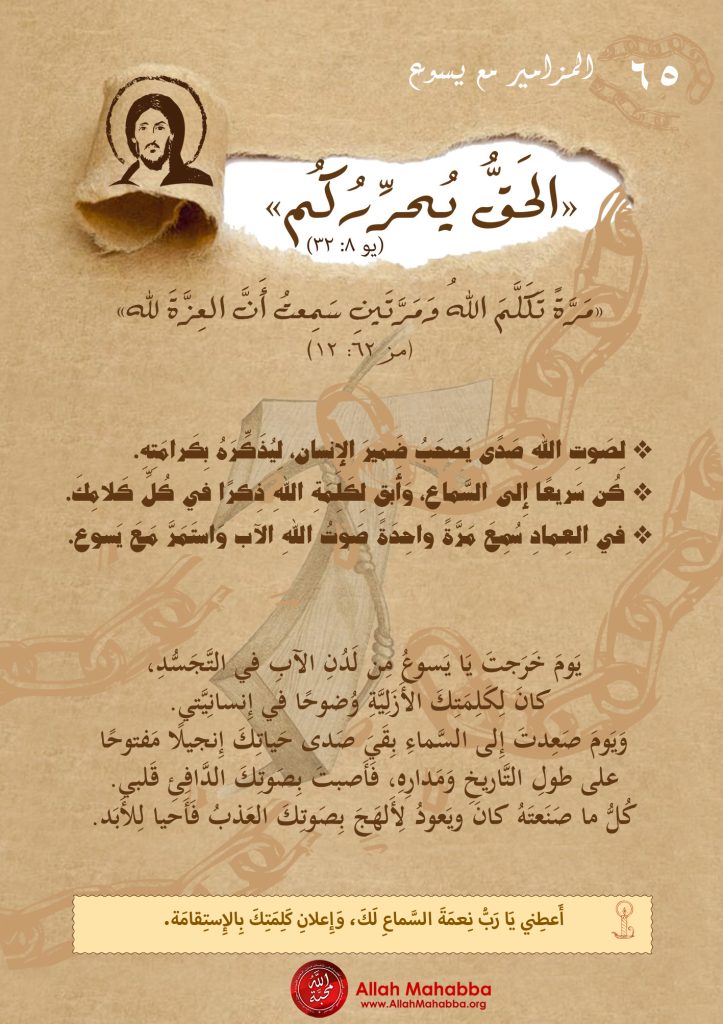 ٦٥ المزامير مع يسوع
«الحَقُّ يُحرِّرُكُم»
(يو ٨: ٣٢)
«مَرَّةً تَكَلَّمَ اللهُ وَمَرَّتَينِ سَمِعتُ أَنَّ العِزَّةَ لله»
(مز ٦٢: ١٢)
❖ لِصَوتِ اللهِ صَدًى يَصحَبُ ضَميرَ الإنسان، ليُذَكِّرَهُ بِكَرامَتِهِ.
❖ كُن سَريعًا إِلى السَّماعِ، وَأَبقِ لكَلمَةِ اللهِ ذِكرًا في كُلِّ كَلامِكَ.
❖ في العِمادِ سُمِعَ مَرَّةً واحِدَةً صَوتُ اللهِ الآب واستَمَرَّ مَعَ يَسوع.
يَومَ خَرَجتَ يا يَسوعُ مِن لَدُنِ الآبِ في التَّجَسُّدِ،
كانَ لِكَلِمَتِكَ الأَزَلِيَّةِ وُضوحًا في إِنسانِيَّتي.
وَيَومَ صَعِدتَ إِلى السَّماءِ بِقَيَ صَدى حَياتِكَ إِنجيلًا مَفتوحًا
على طولِ التَّاريخِ وَمَدارِهِ، فَأَصبتَ بِصَوتِكَ الدَّافِئِ قَلبي.
كُلُّ ما صَنَعتَهُ كانَ ويَعودُ لِأَلهَجَ بِصَوتِكَ العَذبُ فَأَحيا لِلأَبَد.
أَعطِني يَا رَبُّ نِعمَةَ السَّماعِ لَكَ، وَإِعلانِ كَلِمَتِكَ بِالإِستِقامَة.
الله محبّة
Allah Mahabba
www.AllahMahabba.org